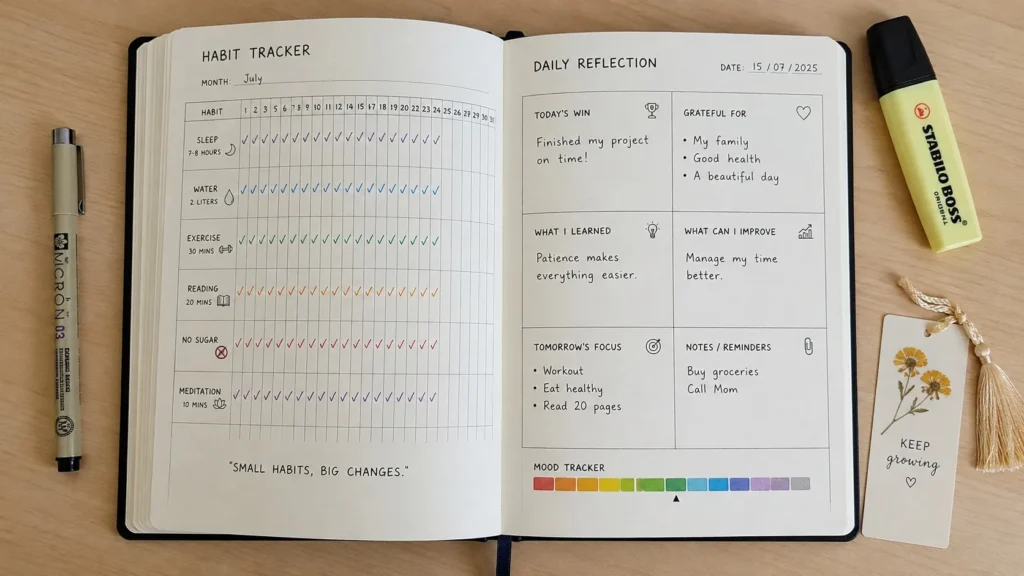 HABIT TRACKER
MONTH: July
HABIT 1 2 3 4 5 6 7 8 9 10 11 12 14 15 17 18 19 20 21 22 23 24 25 26 27 29 30 31
SLEEP
7-8 HOURS
WATER
2 LITERS
EXERCISE
30 MINS
READING
20 MINS
NO SUGAR
MEDITATION
10 MINS
"SMALL HABITS, BIG CHANGES."
DAILY REFLECTION
DATE: 15 / 07 / 2025
TODAY'S WIN
Finished my project
on time!
GRATEFUL FOR
• My family
• Good health
• A beautiful day
WHAT I LEARNED
Patience makes
everything easier.
WHAT CAN I IMPROVE
Manage my time
better.
TOMORROW'S FOCUS
• Workout
• Eat healthy
• Read 20 pages
NOTES / REMINDERS
Buy groceries
Call Mom
MOOD TRACKER
MICRON 03
STABILO BOSS
ORIGINAL
KEEP
growing